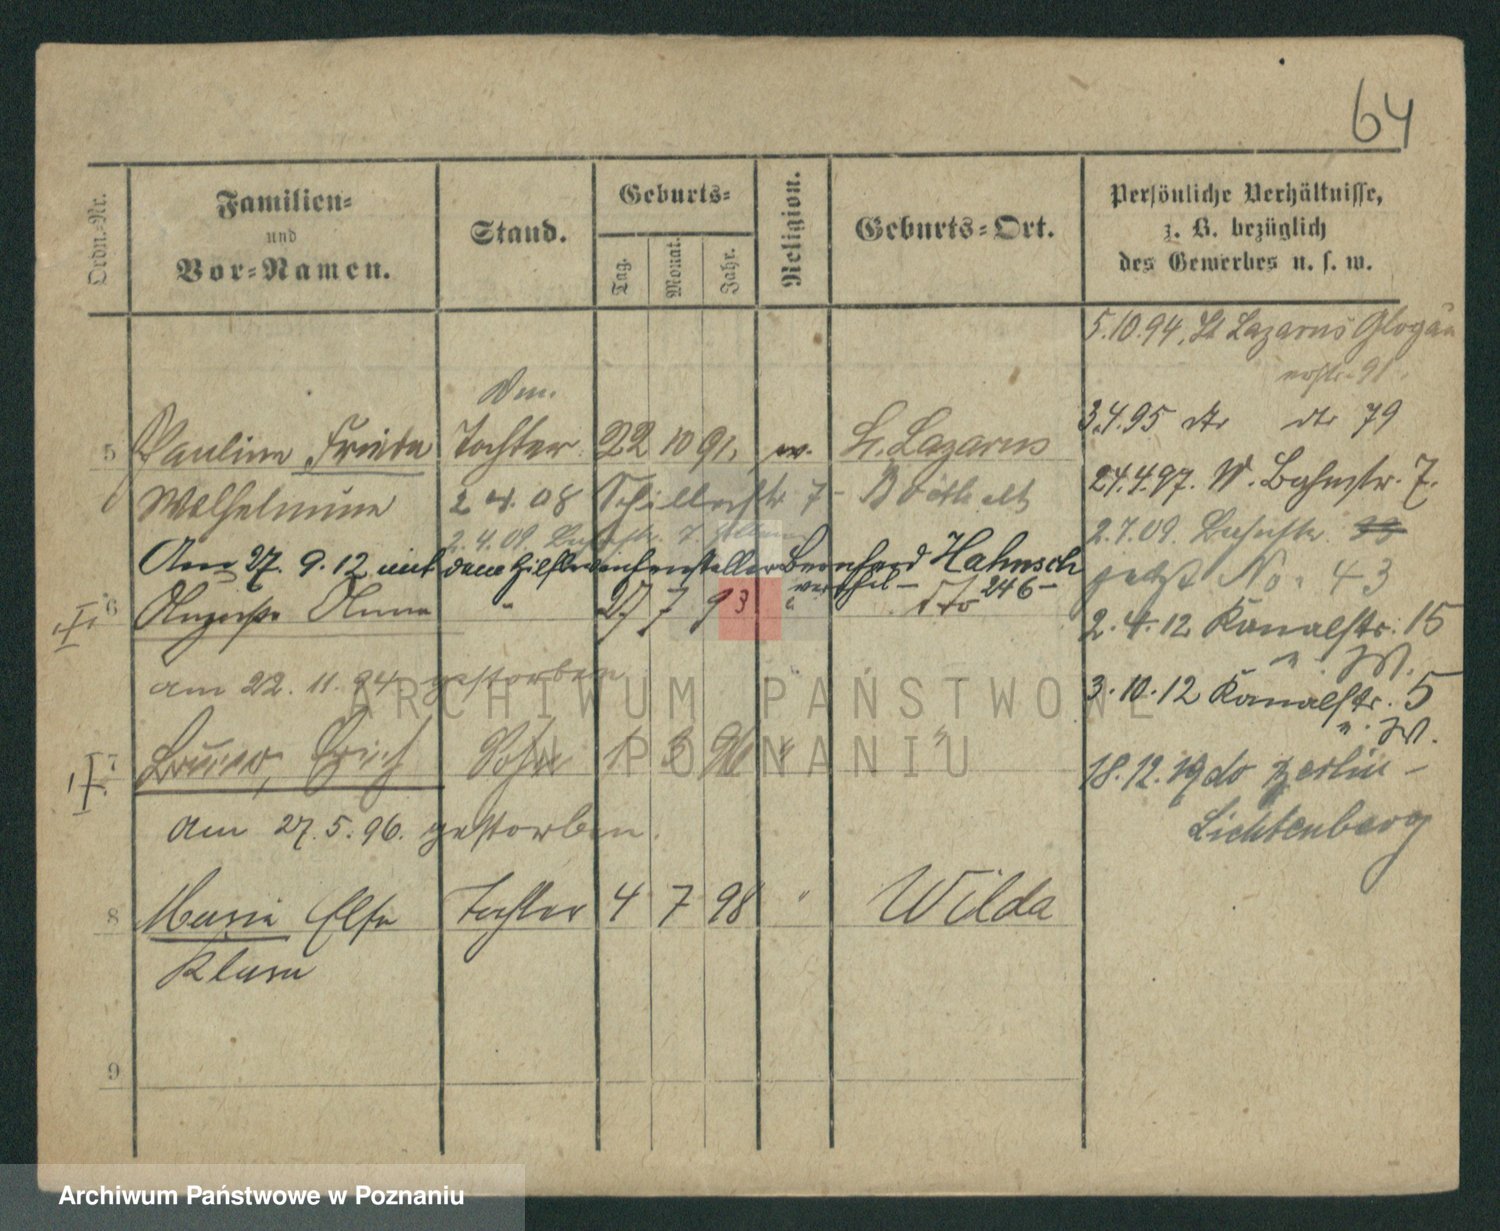 64
Ordn.-Nr.
Familien-
und
Vor-Namen.
Stand.
Geburts-
Tag.
Monat.
Jahr.
Religion.
Geburts-Ort.
Persönliche Verhältnisse,
z. B. bezüglich
des Gewerbes u. s. w.
5.10.94. St Lazarus Glogau
erstr. 91.
3.4.95 dto dto 79
5 Pauline Frieda Tochter 22 10 91. St. Lazarus
24.4.97. W. Bahnstr. 7.
Wilhelmine 2 4. 08 7-
2.4.09. 7.
2.7.09. Bahnstr.
jetzt No. 43
Am 27. 9. 12 mit dem Hilfsweichensteller Bernhard Hahnsch
verehel- 246-
6 Auguste Anna " 27 7 93 "
2. 4. 12 Kanalstr. 15
" W.
am 22. 11. 94 gestorben
3. 10. 12 Kanalstr. 5
" W.
7 Bruno, Erich Sohn 1 3 96 " "
18. 12. 19 do Berlin-
Lichtenberg
am 27. 5. 96. gestorben.
8 Marie Else Tochter 4 7 98 " Wilda
Klara
9
ARCHIWUM PAŃSTWOWE
W POZNANIU
Archiwum Państwowe w Poznaniu